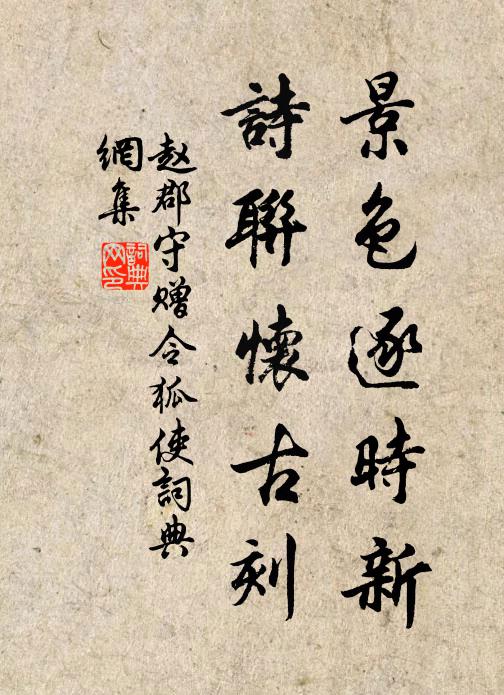 景色逐時新
詩聯懷古刻
赵郡守赠令狐使詞典
網集
詞典
网印